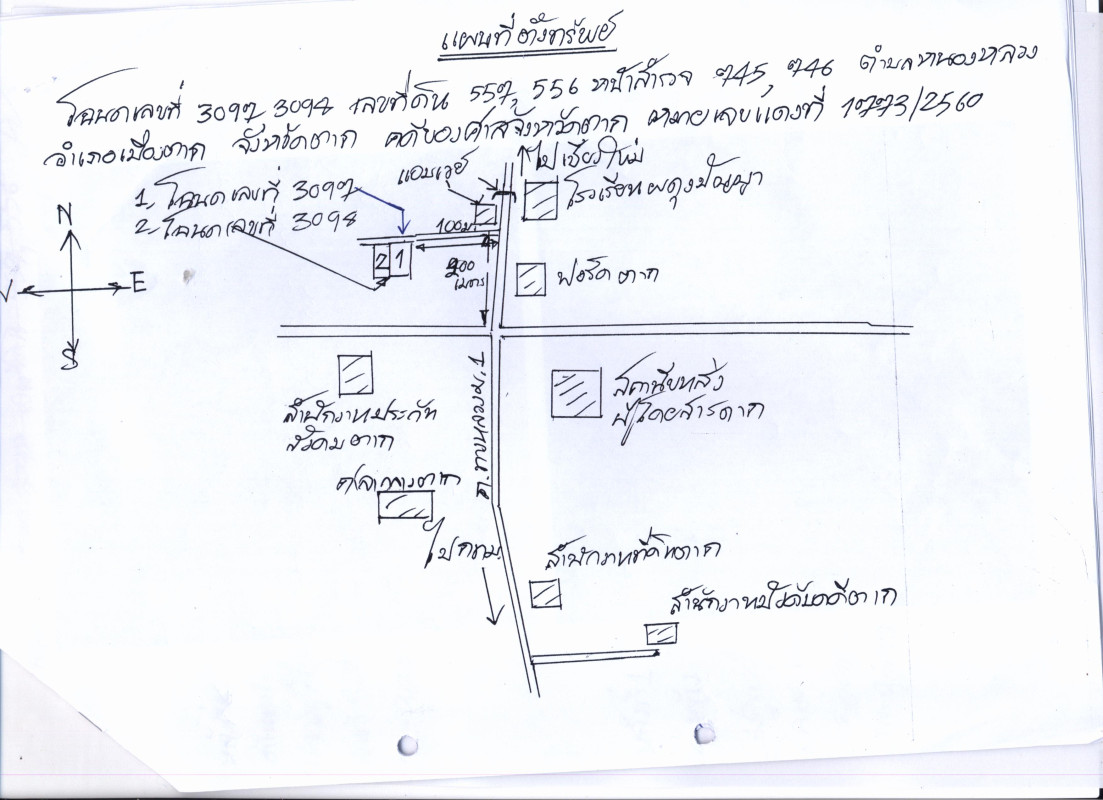 แผนที่ตั้งทรัพย์
โฉนดเลขที่ 3097, 3098 เลขที่ดิน 557, 556 หน้าสำรวจ 745, 746 ตำบลหนองหลวง
อำเภอเมืองตาก จังหวัดตาก คดีของศาลจังหวัดตาก หมายเลขแดงที่ 1773/2560
ไปเชียงใหม่
แอมเวย์
โรงเรียนผดุงปัญญา
1. โฉนดเลขที่ 3097
2. โฉนดเลขที่ 3098
N
E
S
100ม.
2 1
200
เมตร
ฟอร์ด ตาก
ถ.พหลโยธิน
สถานีขนส่ง
ผู้โดยสารตาก
สำนักงานประกัน
สังคม ตาก
ศาลากลางตาก
ไปกทม.
สำนักงานที่ดินตาก
สำนักงานบังคับคดีตาก